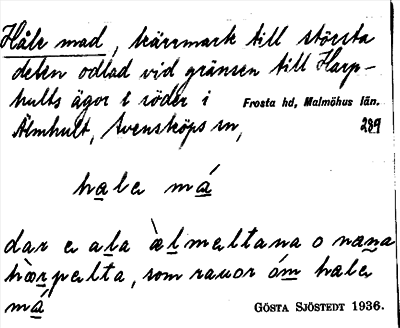 Håle mad, kärrmark till största
delen odlad vid gränsen till Harp-
hults ägor i söder i Frosta hd, Malmöhus län.
Älmhult, Svensköps sn, 289
hale má
dar e ala àlmeltana o næna
hàrpelta, som rauor óm hale
má GÖSTA SJÖSTEDT 1936.